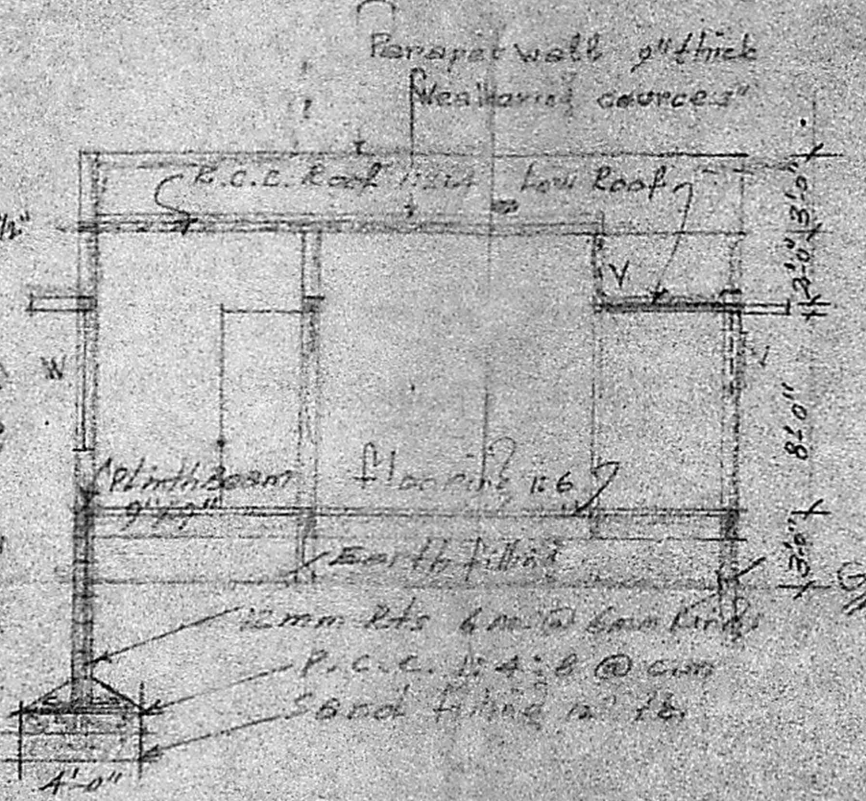 Parapet wall 9" thick
Weathering cources"
R.C.C. Roof Low Roof
3'-0"
1/2"
2'-0"
V
W
V
8'-0"
Plinth Beam
9"x9"
flooring 1:6
3'-0"
Earth filling
12mm Rds 6 no. @ 6mm Rings
P.C.C. 1:4:8 @
Sand filling
4'-0"